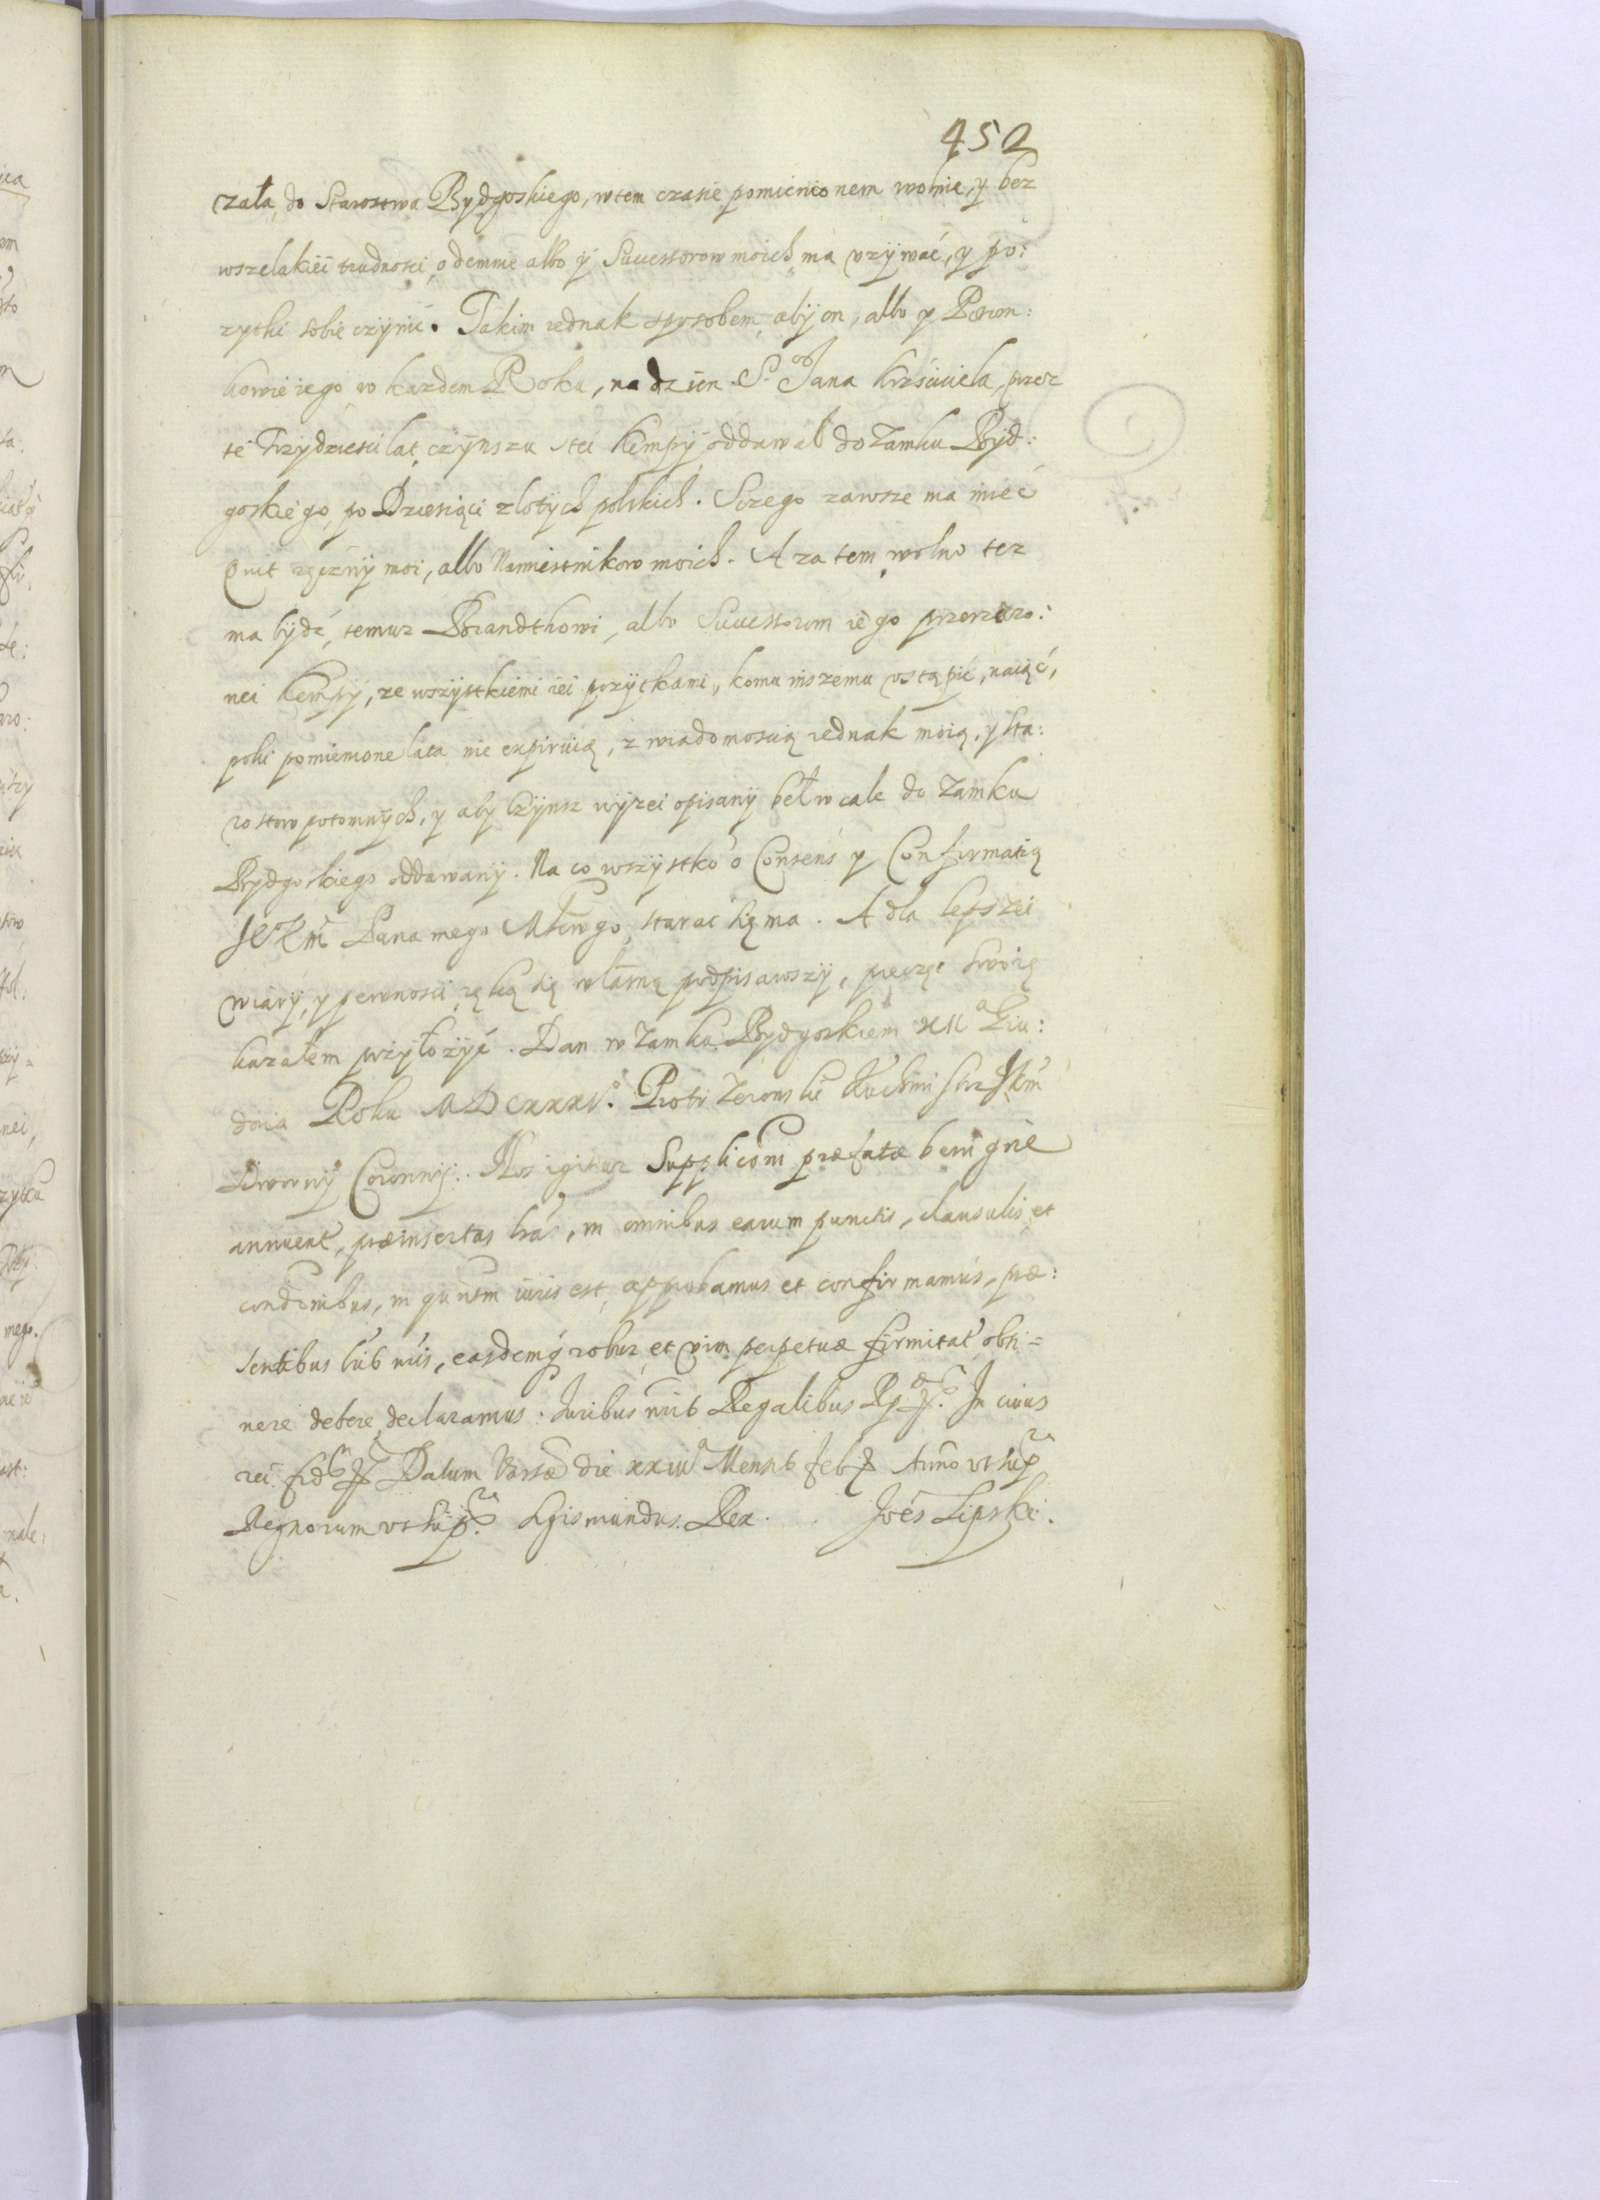 452
czała do Starostwa Bydgoskiego, w tem czasie pomienionem wolnie, y bez
wszelakiei trudnosci, odemnie albo ÿ Successorow moich ma vzywać, y po:
zytki sobie czynić. Takim iednak sposobem, abÿ on, albo y Potom:
kowie iego w kazdem Roku, na dzien S° Jana Krzsciciela, przez
te Trzydziesci lat, czÿnszu s tei Kempÿ oddawał do Zamku Bÿd:
goskiego, po Dziesiąci złotÿch polskich. Sczego zawsze ma mieć
Quit ręcznÿ moi, albo Namiestnikow moich. A za tem wolno tez
ma bÿdź, temuz Brandthowi, albo Successorom iego przerzeczo:
nei Kempÿ, ze wszÿstkiemi iei pozÿtkami, komu inszemu vstąpić, naiąć,
poki pomienione lata nie expiruią, z wiadomoscią iednak moią, y Sta:
rostow potomnÿch, y aby Czÿnsz wÿzei opisanÿ beł w cale do Zamku
Bydgoskiego oddawanÿ. Na co wszystko o Consens y Confirmatią
JeKM Pana mego Młčwgo, starac się ma. A dla lepszei
wiarÿ, y pewnosci, ręką się własną podpisawszÿ, pięczęć swoię
kazałem przyłozÿć. Dan w Zamku Bydgoskiem XII Gru:
dnia Roku MDCXXXV° Piotr Zeronskÿ Kuchmistrz JKM
Dwornÿ Coronnÿ. Nos igitur Supplicõni præfatæ benigne
annuent, præinsertas lrás, in omnibus earum punctis, clausulis, et
condõnibus, in quãtm iuris est, approbamus et confirmamus, præ:
sentibus lrib nrĩs, easdemq́ robur et vim perpetuæ firmitat obti=
nere debere declaramus. Juribus nrĩs Regalibus Rp In cuius
rei fid Datum Varsæ die XXIII Mensis Feb Anno vt sup
Regnorum vt sup. Sigismundus Rex. Joẽs Lipski.